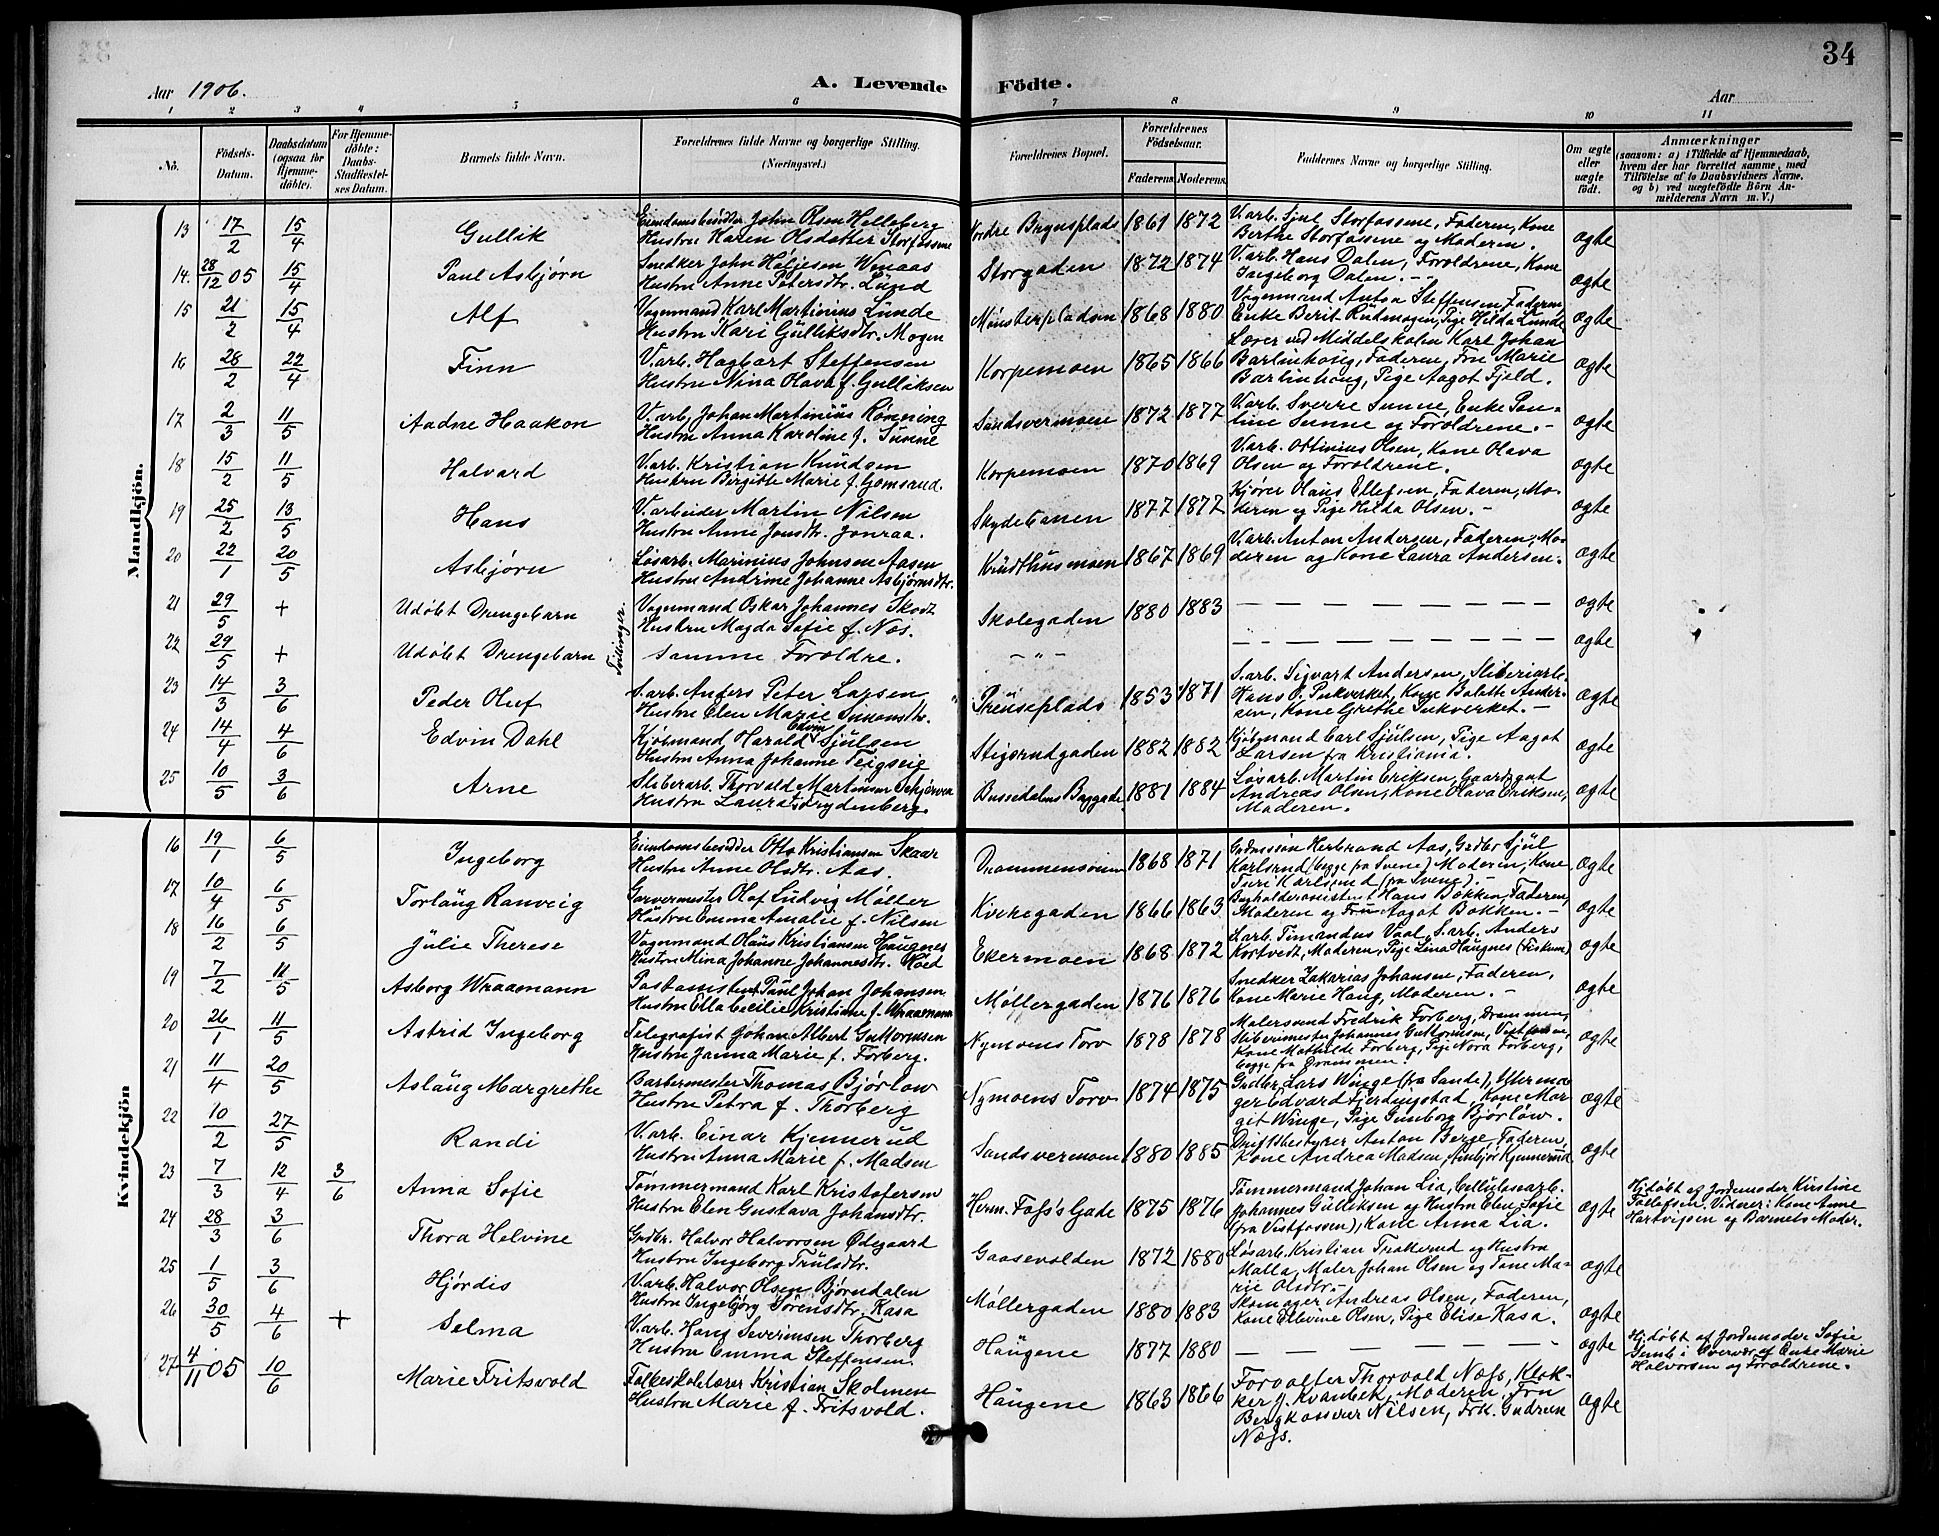 34
Aar 1906.
A. Levende Födte.
Aar
1 2 3 4 5 6 7 8 9 10 11
No.
Födsels-Datum.
Daabsdatum (ogsaa for Hjemme-döbte).
For Hjemme-döbte: Daabs-Stadfæstel-ses Datum.
Barnets fulde Navn.
Forældrenes fulde Navne og borgerlige Stilling. (Næringsvei.)
Forældrenes Bopæl.
Forældrenes Födselsaar.
Faderens. Moderens.
Faddernes Navne og borgerlige Stilling.
Om ægte eller uægte født.
Anmærkninger
(saasom: a) i Tilfælde af Hjemmedaab, hvem der har forrettet samme, med Tilföielse af to Daabsvidners Navne, og b) ved uægtefödte Börn An-melderens Navn m. V.)
Mandkjön.
13 17/2 15/4 Gullik
Eiendomsbesidder John Olsen Helleberg
Hustru Karen Olsdatter Storfossene
Nordre Brynsplads 1861 1872
V.arb. Sjul Storfossene, Faderen, Kone
Berthe Storfossene og Moderen.
ægte
14. 28/12 05 15/4 Paul Asbjørn
Snedker John Wemaas
Hustru Anne Petersdtr. Lund
Storgaden 1872 1874
V.arb. Hans Dalen, Forældrene, Kone
Ingeborg Dalen. -
ægte
15 21/2 15/4 Alf
Vognmand Karl Martinius Lunde
Hustru Kari Gulliksdtr. Mogen
Mønsterpladsen 1868 1880
Vognmand Anton Steffensen, Faderen,
Enke Berit Rudmogen, Pige Hilda Lunde
ægte
16 28/2 22/4 Finn
V.arb. Hagbart Steffensen
Hustru Nina Olava f. Gulliksen
Korpemoen 1865 1866
Lærer ved Middelskolen Karl Johan
Barlinhoug, Faderen, Fru Marie
Barlinhoug, Pige Aagot Fjeld.
ægte
17 2/3 11/5 Aadne Haakon
V.arb. Johan Martinius Rønning
Hustru Anna Karoline f. Sunne
Sandsvermoen 1872 1877
V.arb. Sverre Sunne, Enke Pau-
line Sunne og Forældrene. -
ægte
18 15/2 11/5 Halvard
V.arb. Kristian Knudsen
Hustru Bergitte Marie f. Gomsrud.
Korpemoen 1870 1869
V.arb. Ottinius Olsen, Kone Olava
Olsen og Forældrene.
ægte
19 25/2 13/5 Hans
V.arbeider Martin Nilsen
Hustru Anne Jonsdtr. Jonraa.
Skydebanen 1877 1877
Kjører Hans Ellefsen, Faderen, Mo-
deren og Pige Hilda Olsen. -
ægte
20 22/1 20/5 Asbjørn
Løsarb. Marinius Johnsen Aasen
Hustru Andrine Johanne Asbjørnsdtr.
Krudthusmoen 1867 1869
V.arb. Anton Andersen, Faderen, Mo-
deren og Kone Laura Andersen.
ægte
21 29/5 + Udøbt Drengebarn
Tvillinger.
Vognmand Oskar Johannes Skodt
Hustru Magda Sofie f. Næs.
Skolegaden 1880 1883
— — — — — — — —
ægte
22 29/5 + Udøbt Drengebarn
samme Forældre.
- " -
— — — — — — — —
ægte
23 14/3 3/6 Peder Oluf
S.arb. Anders Peter Larsen
Hustru Elen Marie Simonsdtr.
Preuseplads 1853 1871
S.arb. Sigvart Andersen, Sliberiarb.
Hans O. Pukverket, Kone Bolette Ander-
sen, Kone Grethe Pukverket. -
ægte
24 14/4 4/6 Edvin Dahl
Kjøbmand Harald Edvin Sjulsen
Hustru Anna Johanne Teigseie
Stigerudgaden 1882 1882
Kjøbmand Carl Sjulsen, Pige Aagot
Larsen fra Kristiania.
ægte
25 10/5 3/6 Arne
Sliberarb. Thorvald Martinsen Schjørven
Hustru Laura Strydenberg.
Bussedalens Baggade. 1881 1884
Løsarb. Martin Eriksen, Gaardsgut
Andreas Olsen, Kone Olava Eriksen,
Moderen.
ægte
Kvindekjön
16 19/1 6/5 Ingeborg
Eiendomsbesidder Otto Kristiansen Skaar
Hustru Anne Olsdtr. Aas.
Drammensveien 1868 1871
Grdmssøn Herbrand Aas, Grdbr. Sjul
Karlsrud (begge fra Svene) Moderen, Kone
Turi Karlsrud (fra Svene). -
ægte
17 10/4 6/5 Torlaug Ranveig
Garvermester Olaf Ludvig Møller
Hustru Emma Amalie f. Nilsen
Kirkegaden 1866 1863
Bogholderassistent Hans Bakken, Faderen,
Moderen og Fru Aagot Bakken. -
ægte
18 16/2 6/5 Julie Therese
Vognmand Olaus Kristiansen Haugnes
Hustru Mina Johanne Johannesdtr. Hoed
Ekermoen 1868 1872
L.arb. Timandus Vaal, S.arb. Anders
Kortvedt, Moderen, Pige Lina Haugnes (Fiskum)
ægte
19 7/2 11/5 Asborg Wraamann
Postassistent Paul Johan Johansen
Hustru Ella Cecilie Kristiane f. Wraamann
Møllergaden 1876 1876
Snedker Zakarias Johansen, Faderen,
Kone Marie Haug, Moderen. -
ægte
20 26/1 11/5 Astrid Ingeborg
Telegrafist Johan Albert Guttormsen
Hustru Janna Marie f. Forberg.
Nymoens Torv 1878 1878
Malersvend Fredrik Forberg, Drammen,
Slibermester Johannes Guttormsen, Vestfossen,
Kone Mathilde Forberg, Pige Nora Forberg,
begge fra Drammen.
ægte
21 11/4 20/5 Aslaug Margrethe
Barbermester Thomas Bjørlow
Hustru Petra f. Thorberg
Nymoens Torv 1874 1875
Grdbr. Lars Winge (fra Sande), Uhrma-
ger Edvard Fjerdingstad, Kone Mar-
git Winge, Pige Gunborg Bjørlow.
ægte
22 10/2 27/5 Randi
V.arb. Einar Kjennerud
Hustru Anna Marie f. Madsen
Sandsvermoen 1880 1885
Driftsbestyrer Anton Berge, Faderen,
Kone Andrea Madsen, Ambjør Kjennerud
ægte
23 7/3 12/4 3/6 Anna Sofie
Tømmermand Karl Kristofersen
Hustru Elen Gustava Johansdtr.
Herm. Foss's Gade 1875 1876
Tømmermand Johan Lia, Cellulosearb.
Johannes Gulliksen og Hustru Elen Sofie
(fra Vestfossen), Kone Anna Lia.
ægte
Hj.døbt af Jordemoder Kirstine
Tollefsen. Vidner: Kone Anne
Hartvigsen og Barnets Moder.
24 28/3 3/6 Thora Helvine
Grdbr. Halvor Halvorsen Ødegaard
Hustru Ingeborg Trulsdtr.
Gaasevolden 1872 1880
Løsarb. Kristian Trakerud og Hustru
Malla, Maler Johan Olsen og Tone Ma-
rie Olsdtr.
ægte
25 1/5 3/6 Hjørdis
V.arb. Halvor Olsen Bjørndalen
Hustru Ingebjørg Sørensdtr. Kasa
Møllergaden 1880 1883
Skomager Andreas Olsen, Faderen,
Kone Ellevine Olsen, Pige Elise Kasa.
ægte
26 30/5 4/6 + Selma
V.arb. Hans Severinsen Thorberg
Hustru Emma Steffensen.
Haugene 1877 1880
— — — — — — —
ægte
Hj.døbt af Jordemoder Sofie
Semb i Overvær af Enke Marie
Halvorsen og Forældrene.
27 4/11 05 10/6 Marie Fritsvold
Folkeskolelærer Kristian Skolmen
Hustru Marie f. Fritsvold.
Haugene 1863 1866
Forvalter Thorvald Næss, Klok-
ker J. Kvanbek, Moderen, Fru
Bergkasserer Nilsen, Frk. Gudrun
Næss.
ægte